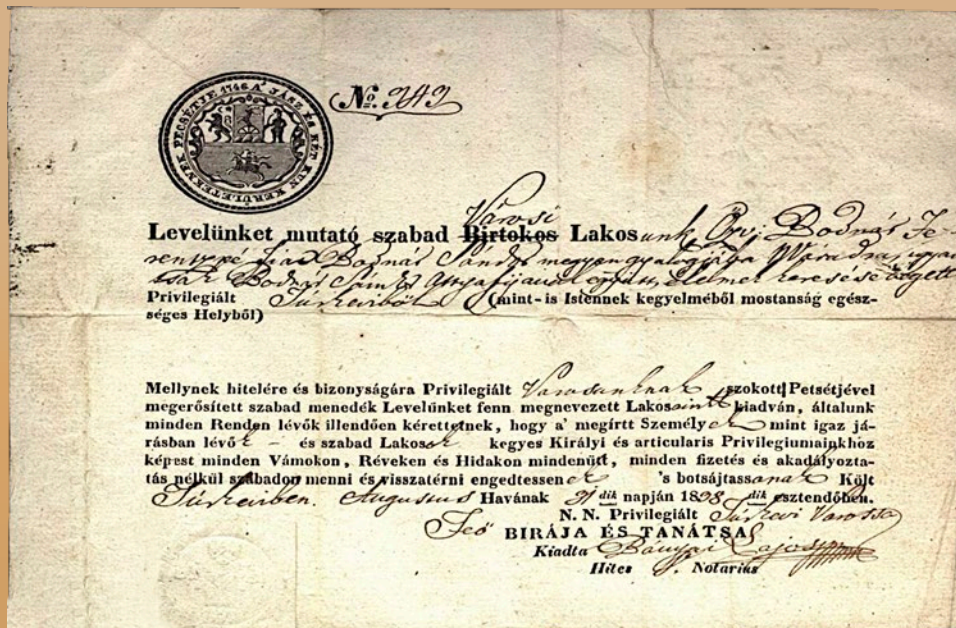 PECSÉTJE 1746 A' JÁSZ ÉS KÉT KUN KERÜLETEKNEK
No. 242
Városi
Levelünket mutató szabad Birtokos Lakosunk Özv: Bodnár Fe-
Bodnár Sándor megyen gyalogjába Váradra,
Bodnár együtt, élelmek keresése végett
Privilegiált Túrkeviből (mint-is Istennek kegyelméből mostanság egész-
séges Helyből)
Mellynek hitelére és bizonyságára Privilegiált Városunknak szokott Petsétjével
megerősített szabad menedék Levelünket fenn megnevezett Lakosaink kiadván, általunk
minden Renden lévők illendően kérettetnek, hogy a' megírtt Személyek mint igaz já-
rásban lévők – és szabad Lakosok kegyes Királyi és articularis Privilegiumainkhoz
képest minden Vámokon, Réveken és Hidakon mindenütt, minden fizetés és akadályozta-
tás nélkül szabadon menni és visszatérni engedtessenek 's botsájtassanak Kült
Túrkeviben. Augusztus Havának dik napján 1838 dik esztendőben.
N. N. Privilegiált Túrkevi Városa
Feő BIRÁJA ÉS TANÁTSA
Kiadta Bányai Lajos
Hites Notarius